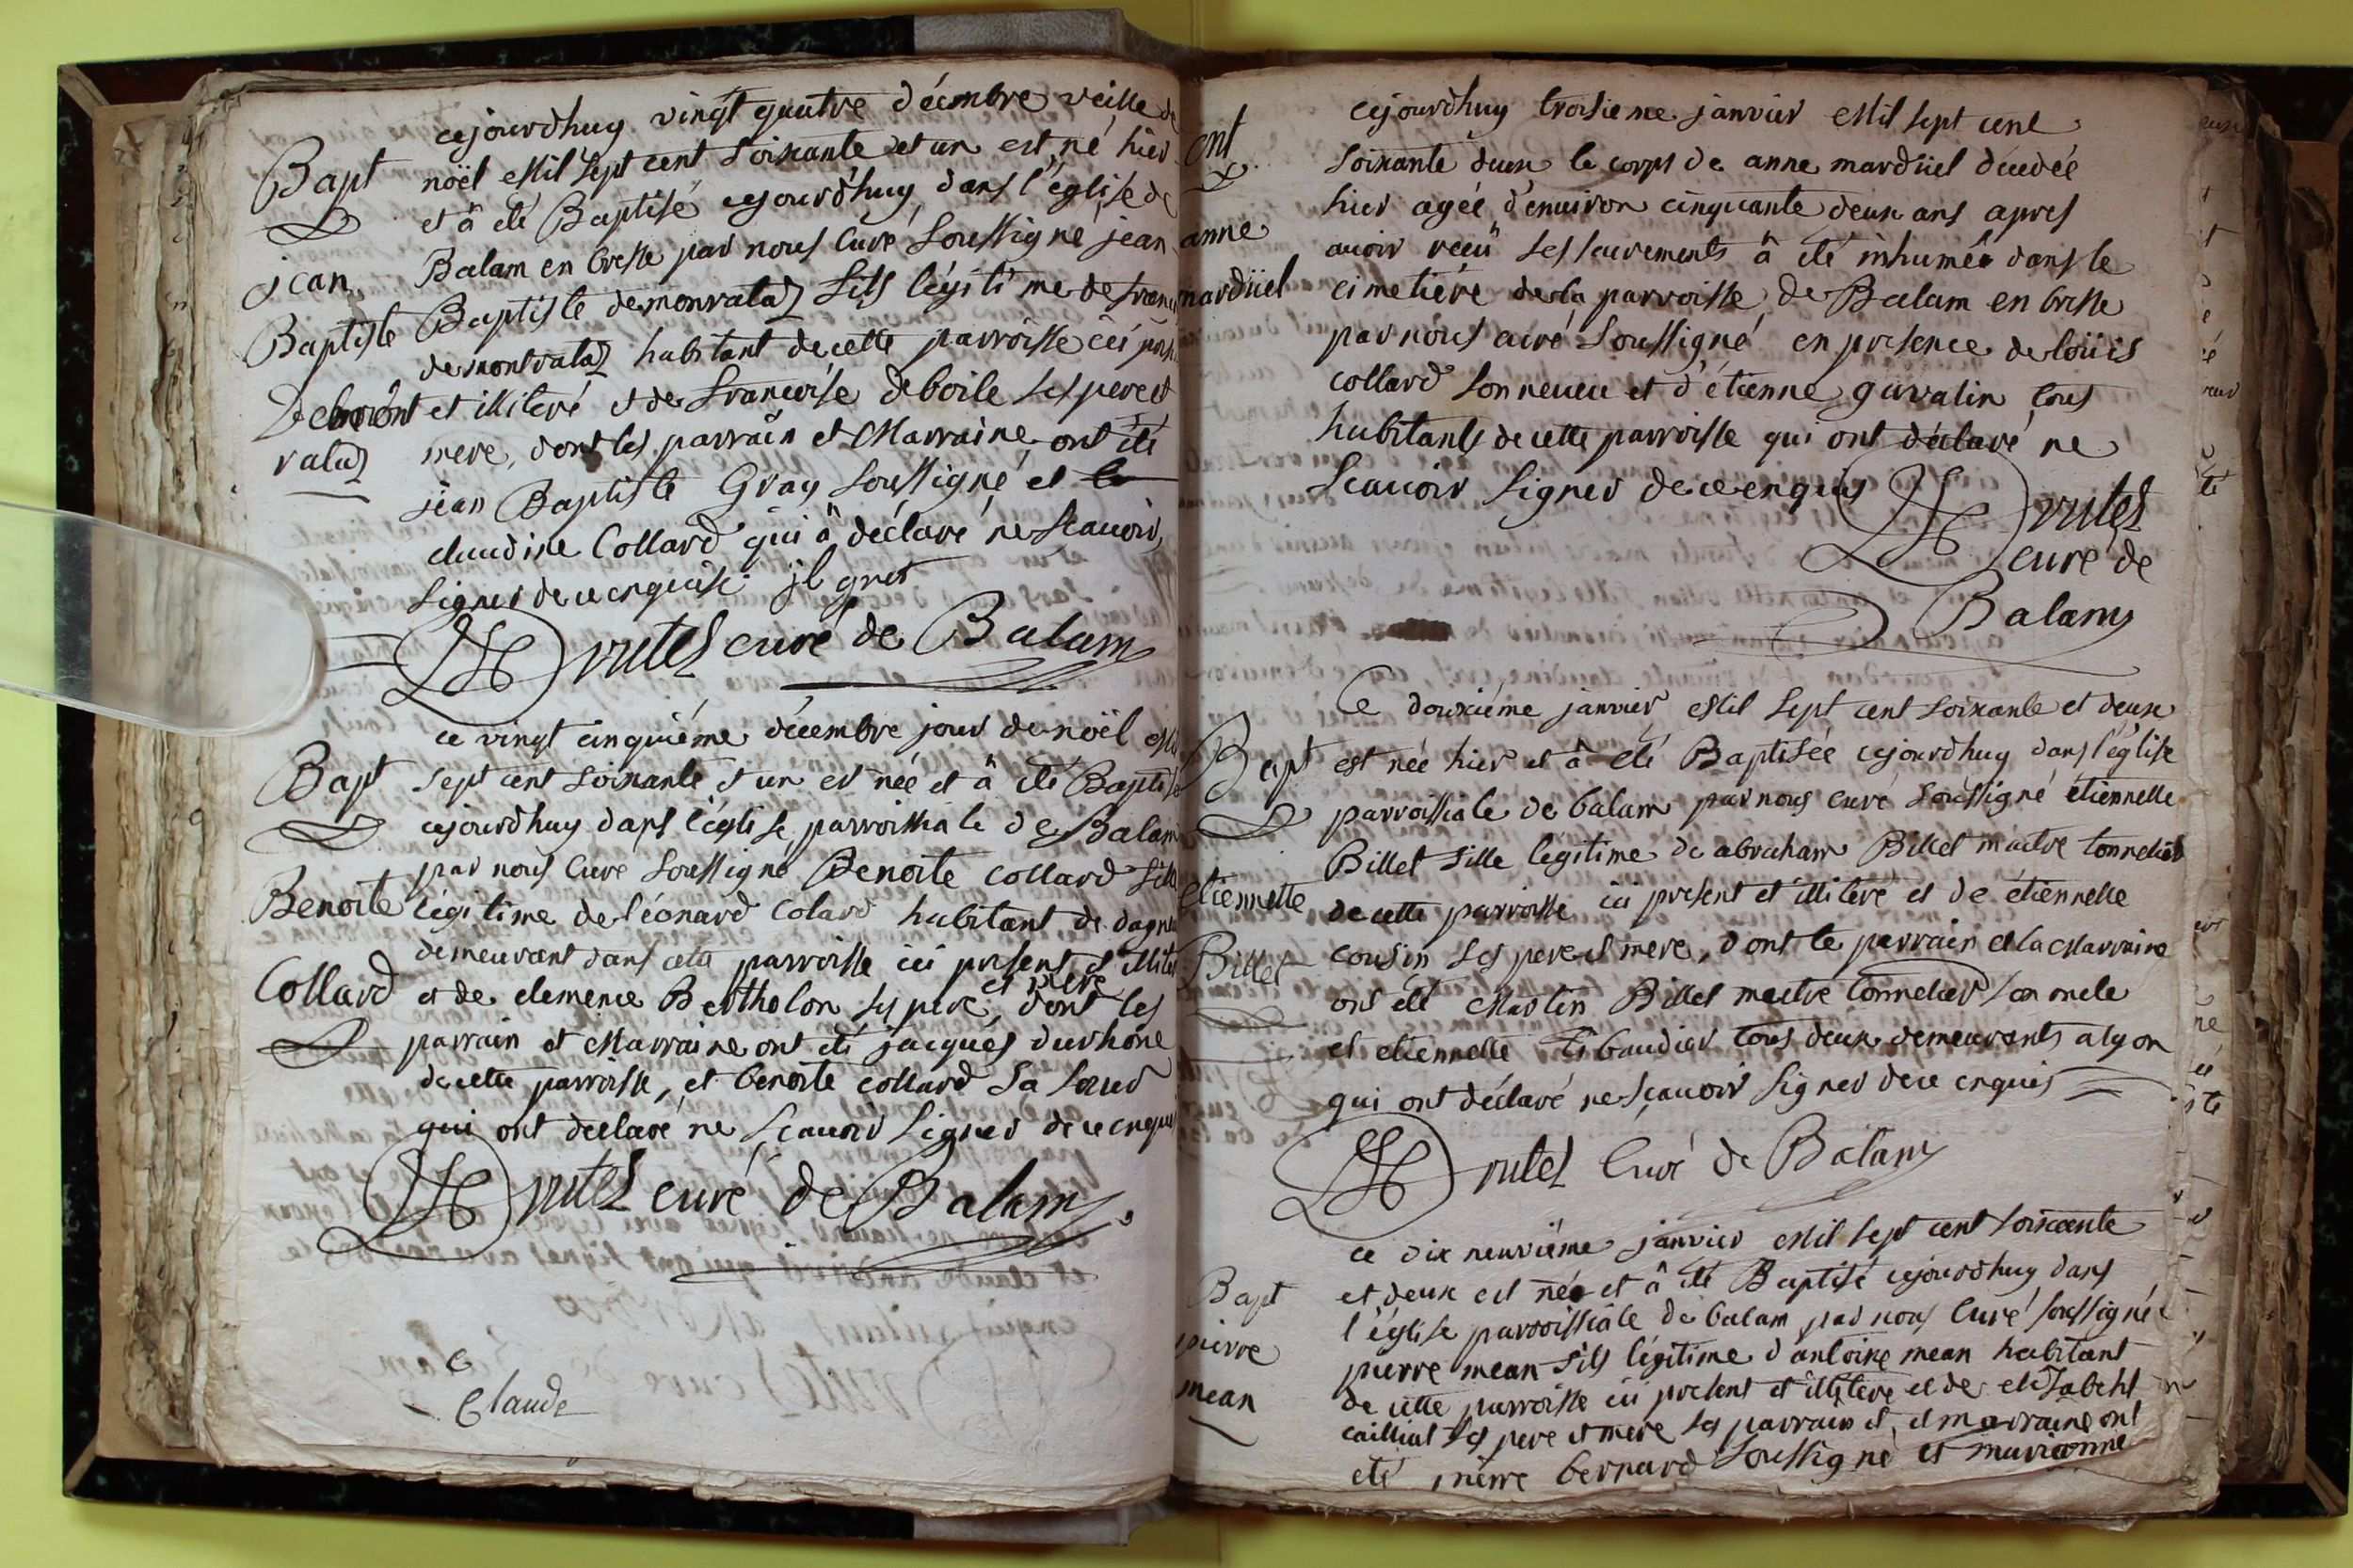 cejourdhuy vingt quatre décembre veille de
Bapt noël Mil sept cent soixante et un est né hier
et â été Baptisé cejourdhuy dans l'église de
Balam en bresse par nous Curé soussigné jean
jean
Baptiste Baptiste demonvalaz fils légitime de
demontvalaz habitant de cette parroisse ici
De mont et illiteré et de francoise deboile ses pere et
valaz mere, dont les parrain et Marraine ont été
jean Baptiste Gray soussigné et
claudine Collard qui â déclaré ne scauoir
signer de ce enquise
Drutel curé de Balam
ce vingt cinquiéme décembre jour de noël
Bapt sept cent soixante et un est née et â été Baptisé
cejourdhuy dans l'église parroissiale de Balam
par nous Curé soussigné Benoite Collard
Benoite légitime de léonard Colard habitant de
demeurant dans cette parroisse ici present et
Collard et de clemence Bertholon ses pere et mere, dont les
parrain et Marraine ont été jacques durhône
de cette parroisse, et benoite collard sa soeur
qui ont declaré ne scauoir signer de ce enquis
Drutel curé de Balam
Claude
cejourdhuy troisieme janvier Mil sept cent
ent soixante deux le corps de anne mardüel décedée
hier agée d'enuiron cinquante deux ans apres
anne auoir reçu ses sacrements â été inhumée dans le
mardüel cimetiére de la parroisse de Balam en bresse
par nous curé soussigné en presence de loüis
collard son neueu et d'étienne gavalin tous
habitants de cette parroisse qui ont déclaré ne
scauoir signer de ce enquis
Drutel
curé de
Balam
Ce douziéme janvier Mil sept cent soixante et deux
Bapt est née hier et â été Baptisée cejourdhuy dans l'église
parroissiale de balam par nous curé soussigné étiennette
Billet fille légitime de abraham Billet maitre tonnelier
étiennette de cette parroisse ici present et illiteré et de étiennette
Billet cousin ses pere et mere, dont le parrain et la Marraine
ont été Martin Billet maitre tonnelier son oncle
et etiennette tibaudier tous deux demeurants a lyon
qui ont déclaré ne scauoir signer de ce enquis
Drutel Curé de Balam
ce dix neuviéme janvier Mil sept cent soixante
Bapt et deux est né et â été Baptisé cejourdhuy dans
l'église parroissiale de balam par nous Curé soussigné
pierre pierre mean fils légitime d'antoine mean habitant
mean de cette parroisse ici present et illiteré et de
ses pere et mere les parrain et marraine ont
été pierre bernard soussigné et marianne